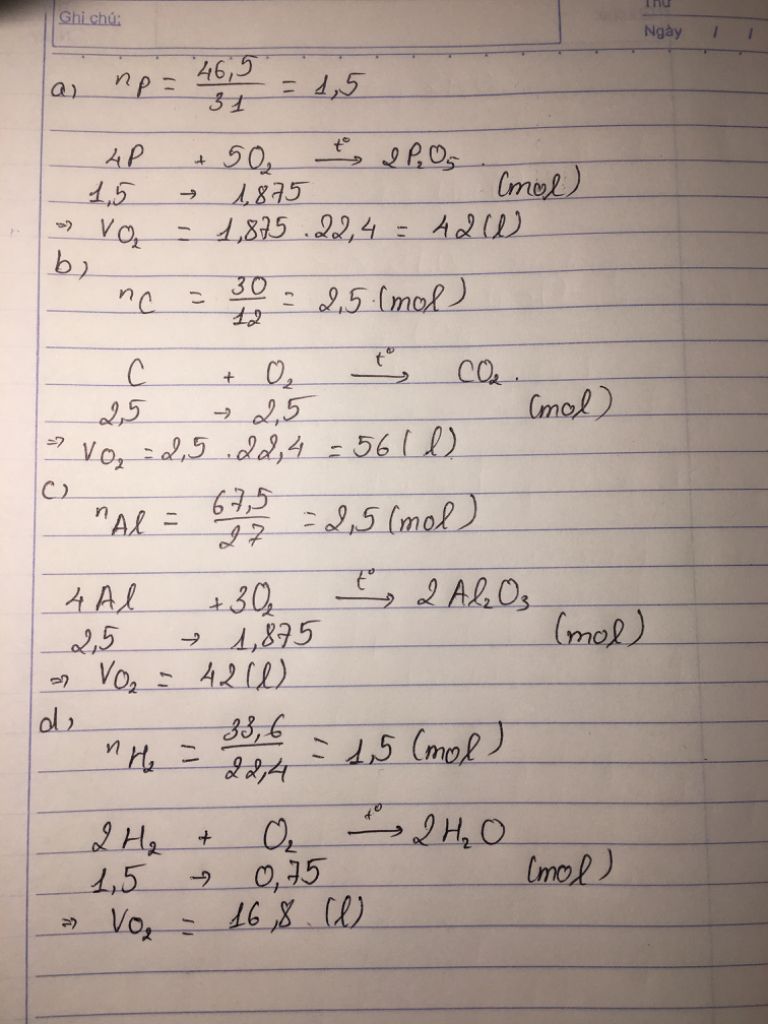 Ghi chú:
Thứ
Ngày / /
a) nP = 46,5/31 = 1,5
4P + 5O₂ —t°→ 2P₂O₅
1,5 → 1,875 (mol)
⇒ VO₂ = 1,875 . 22,4 = 42 (l)
b)
nC = 30/12 = 2,5 (mol)
C + O₂ —t°→ CO₂.
2,5 → 2,5 (mol)
⇒ VO₂ = 2,5 . 22,4 = 56 (l)
c)
nAl = 67,5/27 = 2,5 (mol)
4Al + 3O₂ —t°→ 2Al₂O₃
2,5 → 1,875 (mol)
⇒ VO₂ = 42 (l)
d)
nH₂ = 33,6/22,4 = 1,5 (mol)
2H₂ + O₂ —t°→ 2H₂O
1,5 → 0,75 (mol)
⇒ VO₂ = 16,8 (l)